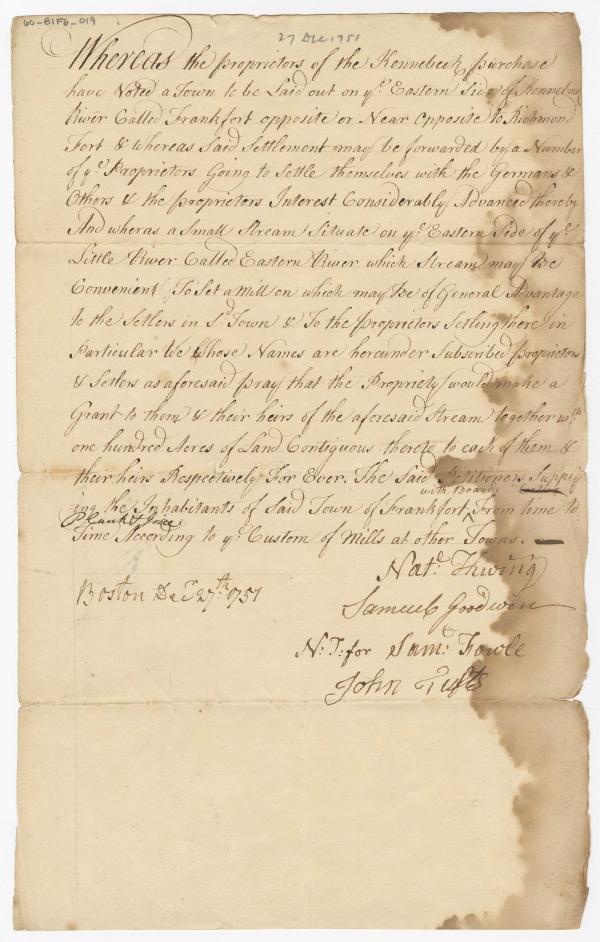 60-B1F6-019
27 Dec 1751
Whereas the proprietors of the Kennebeck purchase
have Voted a Town to be Laid out on ye Eastern Side of Kennebeck
River Called Frankfort opposite or Near opposite to Richmond
Fort & whereas Said Settlement may be forwarded by a Number
of ye Proprietors Going to Settle themselves with the Germans &
Others & the proprietors Interest Considerably Advanced thereby
And wheras a Small Stream Situate on ye Eastern Side of ye
Little River Called Eastern River which Stream may be
Convenient To Set a Mill on which may be of General Advantage
to the Setlers in Sd Town & To the Proprietors Setling there in
Particular We Whose Names are hereunder Subscribed proprietors
& Setlers as aforesaid pray that the Propriety would make a
Grant to them & their heirs of the aforesaid Stream together wth
one hundred Acres of Land Contiguous thereto to each of them &
their heirs Respectively For Ever. The Said Petitioners Supply
ing the Inhabitants of Said Town of Frankfort ^ with Boards From time to
Plank & Joice
Time According to ye Custom of Mills at other Towns.
Natl Thwing
Boston Decr 27th 1751
Samuel Goodwin
N: T: for Saml Fowle
John Tufts